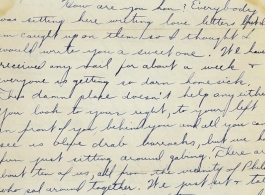 How are you hon? Everybody
was sitting here writing love letters but I
am caught up on them so I thought I
would write you a sweet one. We have
received any mail for about a week &
everyone is getting so darn home sick.
This damn place doesn't help any either
You look to your right, to your left
in front of you behind you and all you can
see is drab barracks, but we have
fun just sitting around gabing. There are
about ten of us, all from the vicinity of Phila
who sat around together. We just sit & talk